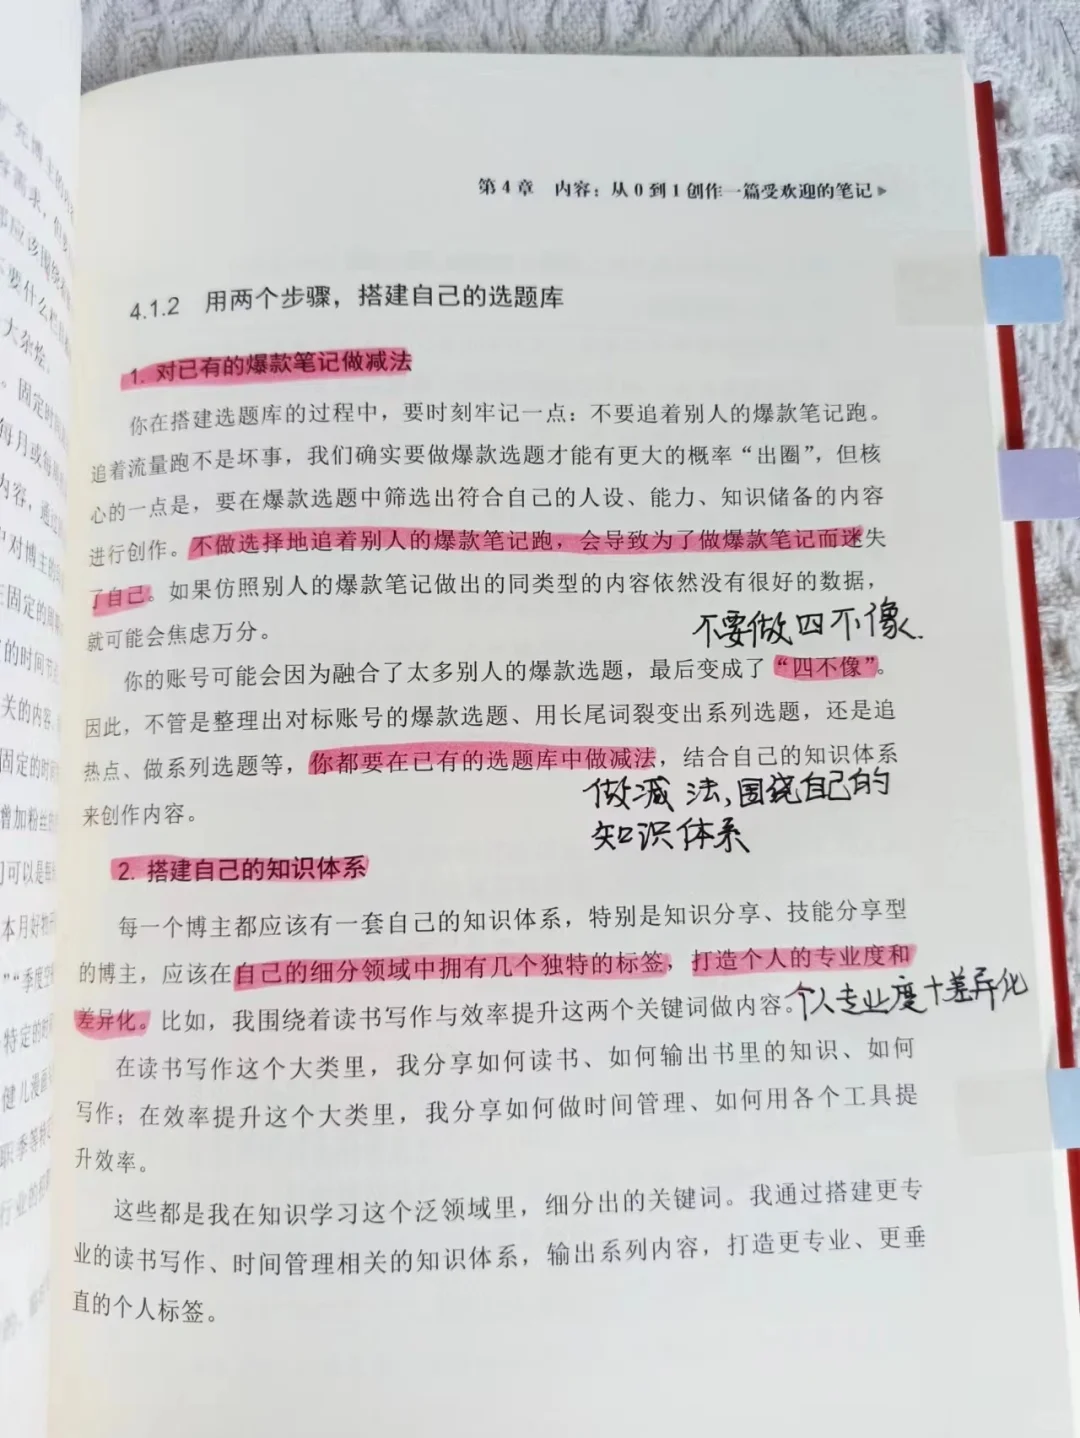 第4章 内容：从0到1创作一篇受欢迎的笔记
4.1.2 用两个步骤，搭建自己的选题库
1. 对已有的爆款笔记做减法
你在搭建选题库的过程中，要时刻牢记一点：不要追着别人的爆款笔记跑。
追着流量跑不是坏事，我们确实要做爆款选题才能有更大的概率“出圈”，但核
心的一点是，要在爆款选题中筛选出符合自己的人设、能力、知识储备的内容
进行创作。不做选择地追着别人的爆款笔记跑，会导致为了做爆款笔记而迷失
了自己。如果仿照别人的爆款笔记做出的同类型的内容依然没有很好的数据，
就可能会焦虑万分。
不要做四不像.
你的账号可能会因为融合了太多别人的爆款选题，最后变成了“四不像”。
因此，不管是整理出对标账号的爆款选题、用长尾词裂变出系列选题，还是追
热点、做系列选题等，你都要在已有的选题库中做减法，结合自己的知识体系
来创作内容。
做减法，围绕自己的
知识体系
2. 搭建自己的知识体系
每一个博主都应该有一套自己的知识体系，特别是知识分享、技能分享型
的博主，应该在自己的细分领域中拥有几个独特的标签，打造个人的专业度和
差异化。比如，我围绕着读书写作与效率提升这两个关键词做内容。
个人专业度+差异化
在读书写作这个大类里，我分享如何读书、如何输出书里的知识、如何
写作；在效率提升这个大类里，我分享如何做时间管理、如何用各个工具提
升效率。
这些都是我在知识学习这个泛领域里，细分出的关键词。我通过搭建更专
业的读书写作、时间管理相关的知识体系，输出系列内容，打造更专业、更垂
直的个人标签。